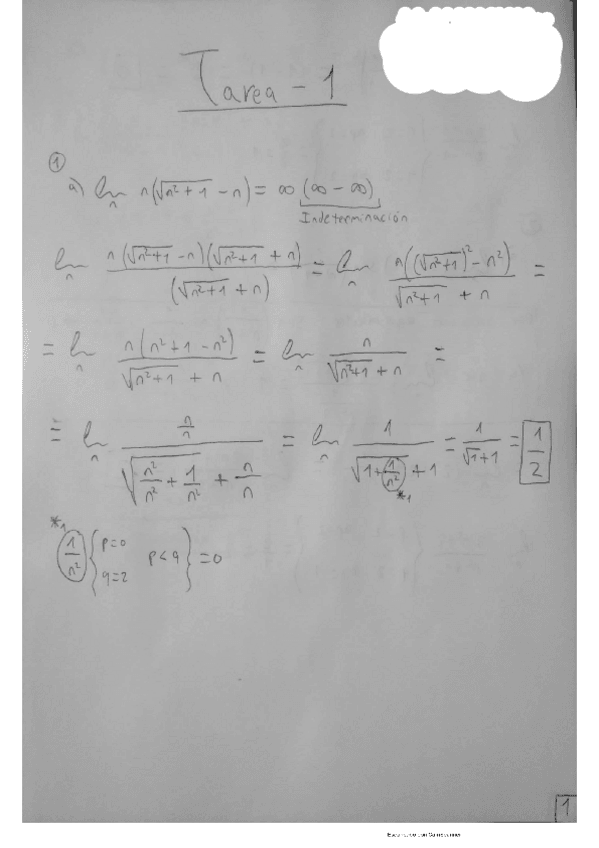 Tarea - 1
①
a) lim_n n(√(n²+1) - n) = ∞ (∞ - ∞)
Indeterminación
lim_n (n(√(n²+1) - n)(√(n²+1) + n)) / (√(n²+1) + n) = lim_n (n((√(n²+1))² - n²)) / (√(n²+1) + n) =
= lim_n (n(n²+1 - n²)) / (√(n²+1) + n) = lim_n n / (√(n²+1) + n) =
= lim_n (n/n) / (√(n²/n² + 1/n²) + n/n) = lim_n 1 / (√(1 + 1/n²) + 1) = 1 / (√1 + 1) = 1/2
*1
*1
1/n² { p=0 q=2 p<q } = 0
1
Escaneado con CamScanner